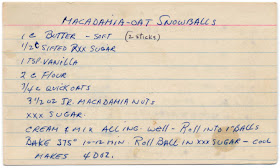 MACADAMIA-OAT SNOWBALLS
1 C BUTTER - SOFT (2 STICKS)
1/2 C SIFTED XXX SUGAR
1 TSP VANILLA
2 C FLOUR
3/4 C QUICK OATS
3 1/2 OZ JR. MACADAMIA NUTS
XXX SUGAR
CREAM & MIX ALL ING. WELL - ROLL INTO 1" BALLS
BAKE 375° 10-12 MIN. ROLL BALL IN XXX SUGAR - COOL
MAKES 4 DOZ.